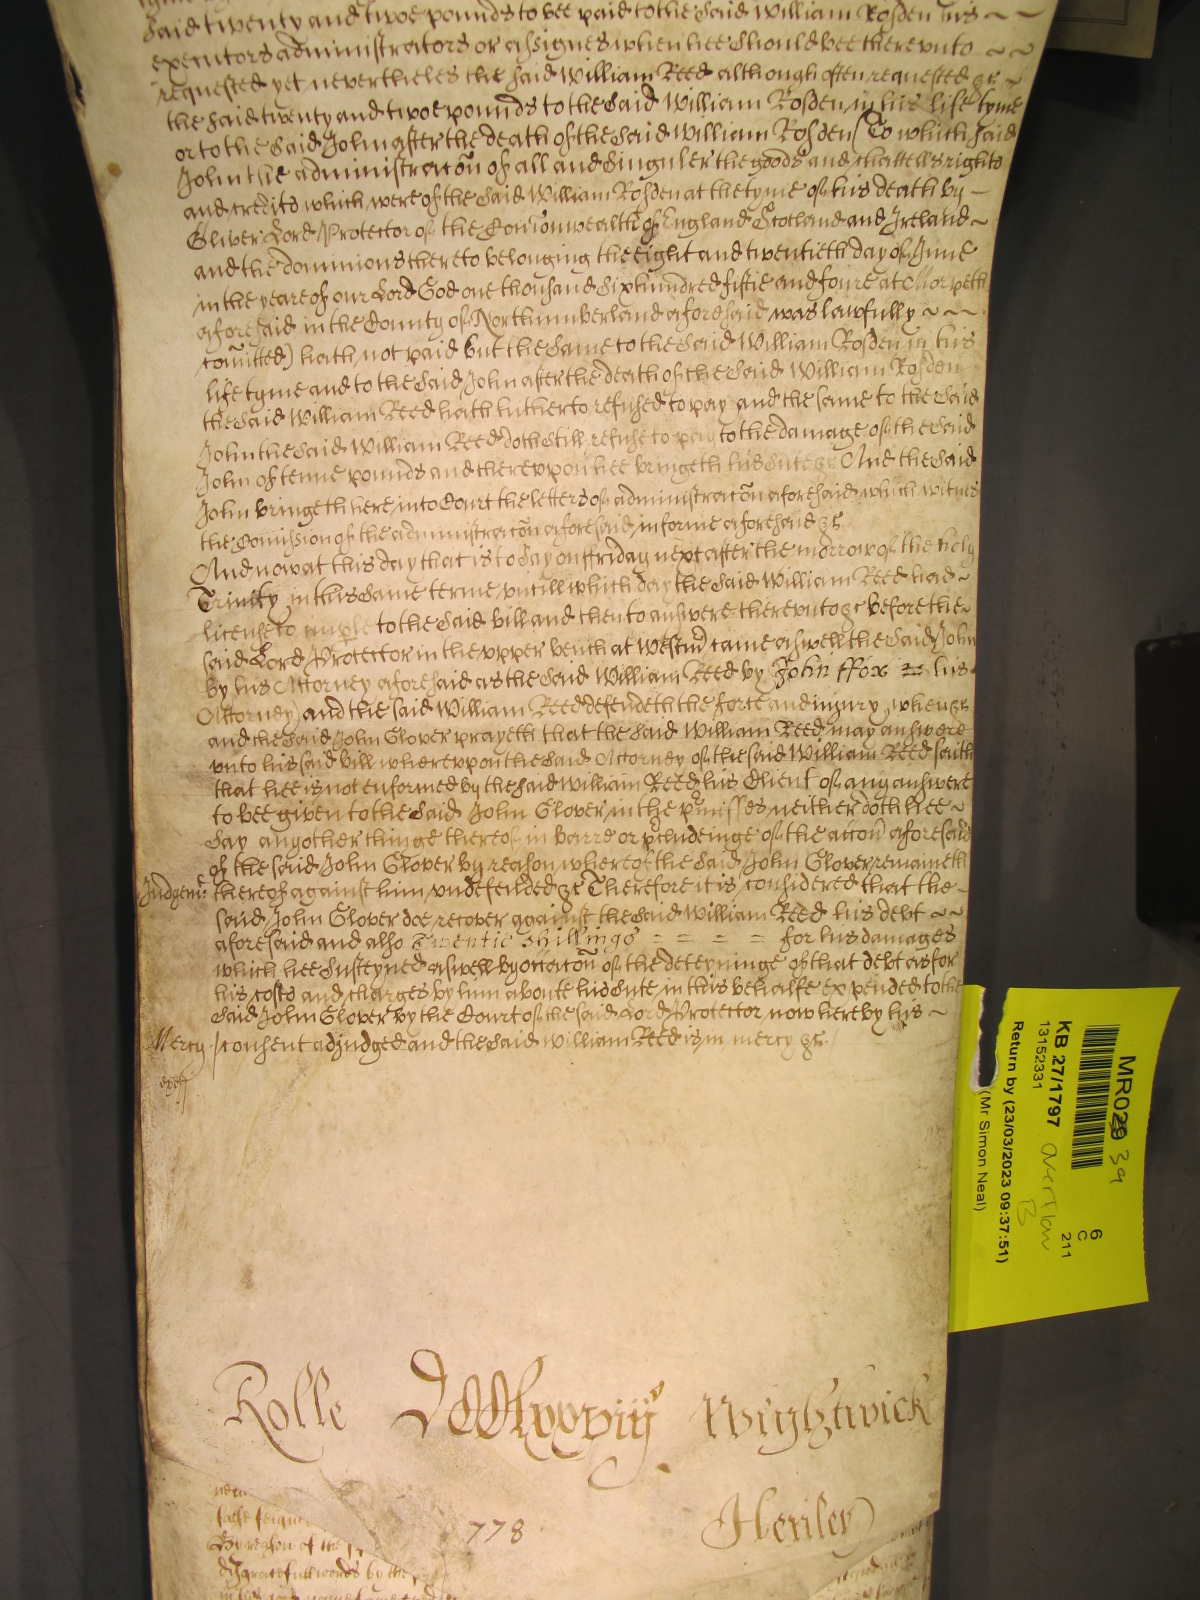 Said twenty and twoe pounds to bee paid to the Said William Rosden his ~ ~
executors administrators or assignes when hee Should bee therevnto ~ ~
requested yet neverthelles the said William Reed although often requested &c ~
the said twenty and twoe pounds to the Said William Rosden in his life tyme
or to the Said John after the death of the Said William Rosden (To which said
John the administracon of all and Singuler the goods and Chattells rights
and credits which were of the Said William Rosden at the tyme of his death by ~
Oliver Lord Protector of the Comonwealth of England Scotland and Ireland ~
and the dominions thereto belonging the eight and twentieth day of June
in the yeare of our Lord God one thousand Six hundred fiftie and foure at Morpeth
aforesaid in the County of Northumberland aforesaid was lawfully ~ ~ ~
comitted) hath not paid but the Same to the Said William Rosden in his
life tyme and to the Said John after the death of the Said William Rosden
the Said William Reed hath hitherto refused to pay and the same to the Said
John the Said William Reed doth Still refuse to pay to the damage of the Said
John of tenne pounds and therevpon hee bringeth his Sute &c And the Said
John bringeth here into Court the letters of administracon aforesaid which witnes
the Comission of the administracon aforesaid in forme aforesaid &c
And now at this day that is to Say on ffriday next after the morrow of the holy
Trinity in this Same terme vntill which day the Said William Reed had ~
license to imple to the Said bill and then to answere therevnto &c before the ~
said Lord Protector in the vpper bench at Westm came aswell the Said John
by his Attorney aforesaid as the Said William Reed by John ffox his
Attorney and the said William Reed defendeth the force and iniury when &c
and the Said John Glover prayeth that the Said William Reed may answere
vnto his said bill wherevpon the Said Attorney of the said William Reed saith
that hee is not enformed by the said William Reed his Client of any answere
to bee given to the Said John Glover in the pmisses neither doth hee ~
Say any other thinge thereof in barre or pcludeinge of the accon aforesaid
of the said John Glover by reason whereof the Said John Glover remaineth
Judgemt thereof against him vndefended &c Therefore it is considered that the ~
said John Glover doe recover against the Said William Reed his debt ~ ~
aforesaid and also Twentie shillings = = = = for his damages
which hee Susteyned aswell by occacon of the deteyninge of that debt as for
his costs and charges by him aboute his Sute in this behalfe expended to the
Said John Glover by the Court of the said Lord Protector now here by his ~
Mercy consent adjudged and the Said William Reed is in mercy &c
Rolle DCCLxxviij Wightwick
778 Henley
false feigned
By reason of the
disgracefull words by the
MR029 39
KB 27/1797
13152331
overflow B
6
C
211
Return by (23/03/2023 09:37:51)
(Mr Simon Neal)